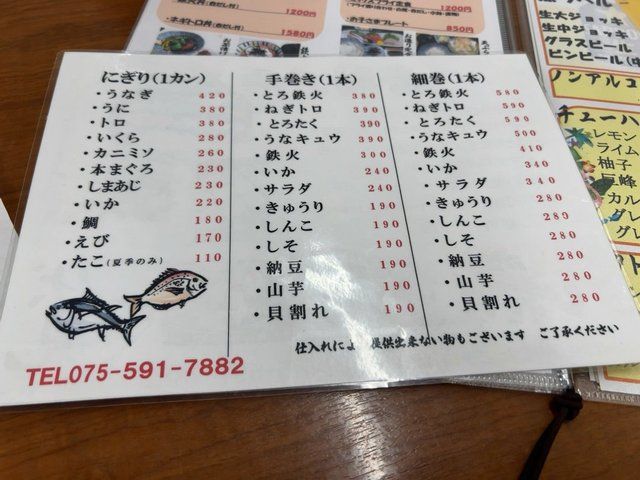 1200円
ネギトロ丼(赤だし付)
1580円
1200円
お子さまプレート
850円
生大ジョッキ
生中ジョッキ
グラスビール
ビンビール(中
ノンアルコ
チューハ
レモン
ライム
柚子
巨峰
カル
グレ
グレ
にぎり(1カン)
・うなぎ 420
・うに 380
・トロ 380
・いくら 280
・カニミソ 260
・本まぐろ 230
・しまあじ 230
・いか 220
・鯛 180
・えび 170
・たこ(夏季のみ) 110
手巻き(1本)
・とろ鉄火 380
・ねぎトロ 390
・とろたく 390
・うなキュウ 390
・鉄火 300
・いか 240
・サラダ 240
・きゅうり 190
・しんこ 190
・しそ 190
・納豆 190
・山芋 190
・貝割れ 190
細巻(1本)
・とろ鉄火 580
・ねぎトロ 590
・とろたく 590
・うなキュウ 500
・鉄火 410
・いか 340
・サラダ 340
・きゅうり 280
・しんこ 280
・しそ 280
・納豆 280
・山芋 280
・貝割れ 280
仕入れによ 提供出来ない物もございます ご了承ください
TEL075-591-7882